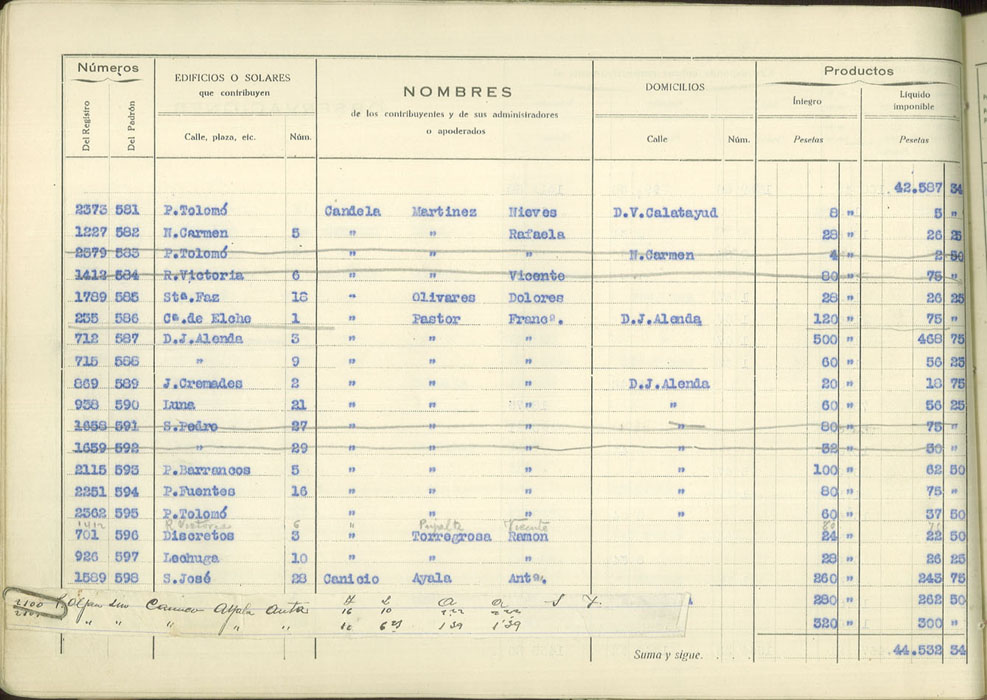 Números
EDIFICIOS O SOLARES
que contribuyen
NOMBRES
de los contribuyentes y de sus administradores
o apoderados
DOMICILIOS
Productos
Íntegro
Líquido
imponible
Del Registro Del Padrón Calle, plaza, etc. Núm. Calle Núm. Pesetas Pesetas
42.587 34
2373 581 P.Tolomó Candela Martinez Nieves D.V.Calatayud 8 " 5 "
1227 582 N.Carmen 5 " " Rafaela 28 " 26 25
2379 583 P.Tolomó " " " N.Carmen 4 " 2 50
1412 584 R.Victoria 6 " " Vicente 80 " 75 "
1789 585 Stª.Faz 18 " Olivares Dolores 28 " 26 25
235 586 Cª.de Elche 1 " Pastor Francº. D.J.Alenda 120 " 75 "
712 587 D.J.Alenda 3 " " " 500 " 468 75
715 588 " 9 " " " 60 " 56 25
869 589 J.Cremades 2 " " " D.J.Alenda 20 " 18 75
938 590 Luna 21 " " " " 60 " 56 25
1658 591 S.Pedro 27 " " " " 80 " 75 "
1659 592 " 29 " " " " 32 " 30 "
2115 593 P.Barrancos 5 " " " " 100 " 62 50
2251 594 P.Fuentes 16 " " " " 80 " 75 "
2362 595 P.Tolomó " " " " 60 " 37 50
1412 R Victoria 6 " Vicente 80
701 596 Discretos 3 " Torregrosa Ramon 24 " 22 50
926 597 Lechuga 10 " " " 28 " 26 25
1589 598 S.José 28 Canicio Ayala Antª. 260 " 243 75
2100 280 " 262 50
" " " " " 320 " 300 "
Suma y sigue. 44.532 34